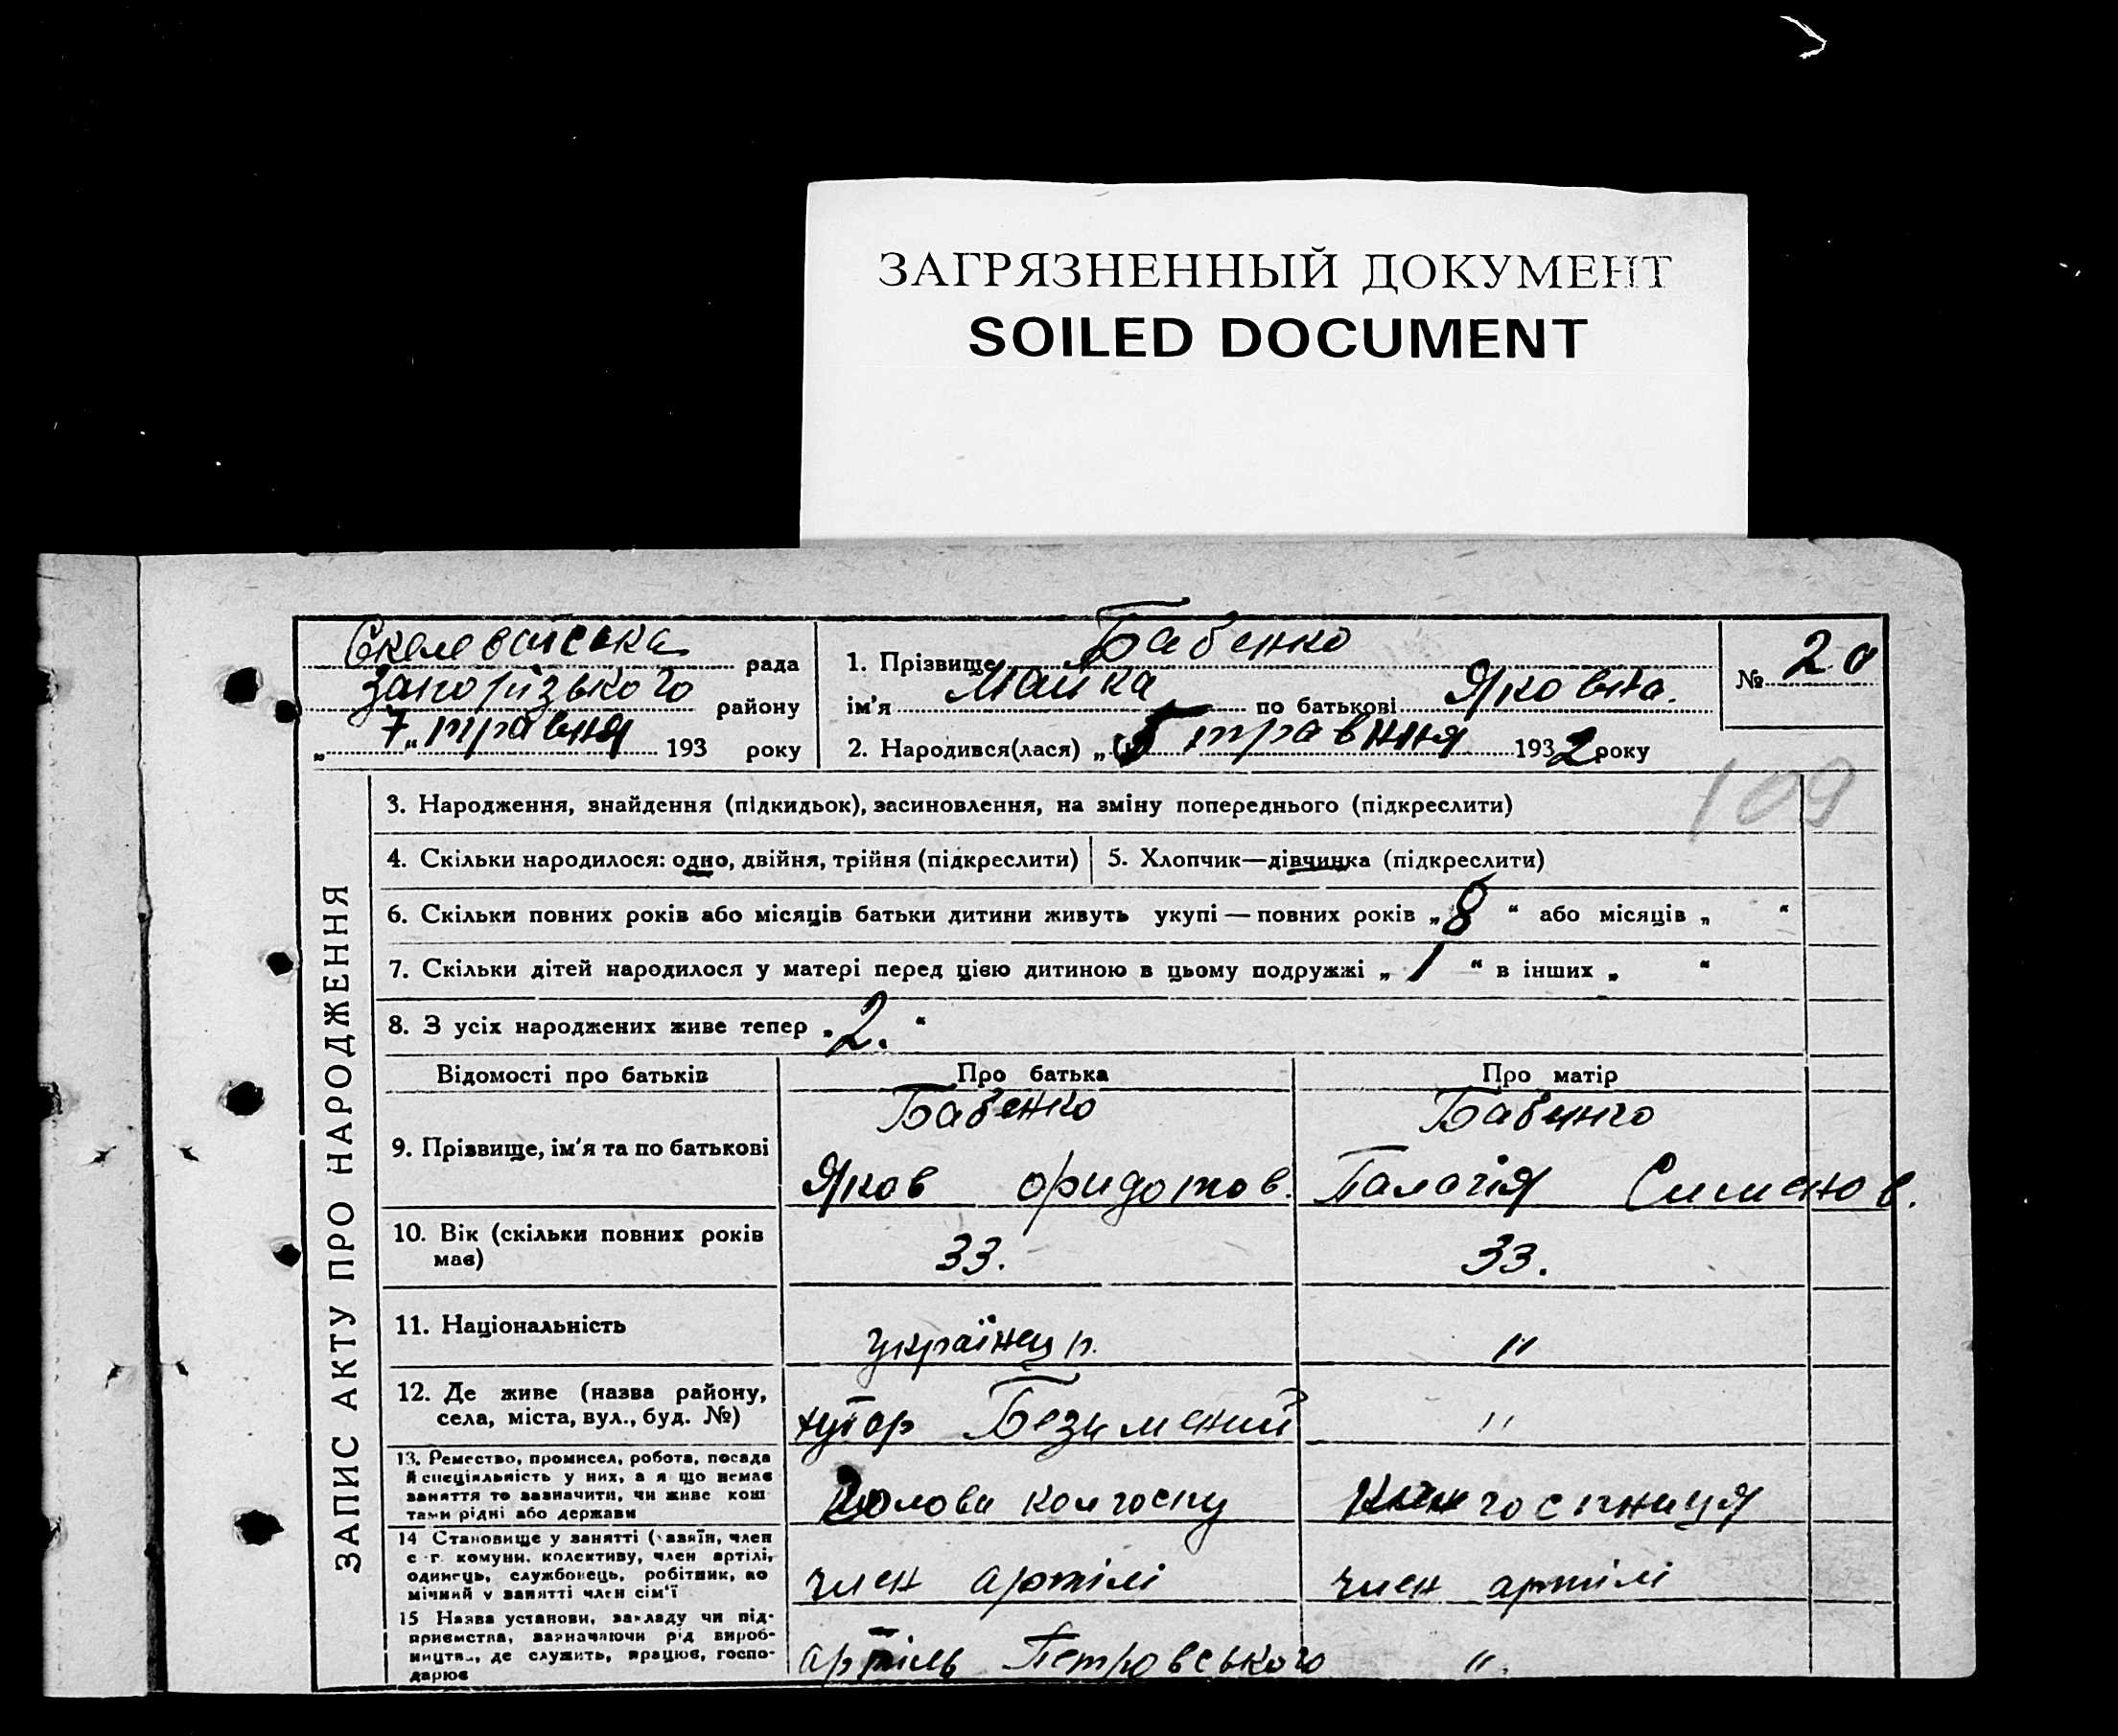 ЗАГРЯЗНЕННЫЙ ДОКУМЕНТ
SOILED DOCUMENT
рада
Запорізького району
„ 7 „ травня 193 року
1. Прізвище Бабенко
ім'я Майка по батькові Яковна.
2. Народився(лася) „ 5 травння 1932 року
№ 20
109
ЗАПИС АКТУ ПРО НАРОДЖЕННЯ
3. Народження, знайдення (підкидьок), засиновлення, на зміну попереднього (підкреслити)
4. Скільки народилося: одно, двійня, трійня (підкреслити)
5. Хлопчик—дівчинка (підкреслити)
6. Скільки повних років або місяців батьки дитини живуть укупі — повних років „ 8 “ або місяців „ “
7. Скільки дітей народилося у матері перед цією дитиною в цьому подружжі „ 1 “ в інших „ “
8. З усіх народжених живе тепер „ 2. “
Відомості про батьків Про батька Про матір
9. Прізвище, ім'я та по батькові
Бабенко
Яков
Бабенко
10. Вік (скільки повних років
має)
33. 33.
11. Національність
українец "
12. Де живе (назва району,
села, міста, вул., буд. №)
хутор Безимений "
13. Ремество, промисел, робота, посада
й спеціяльність у них, а я що немає
заняття то зазначити, чи живе кош
тами рідні або держави
Голова колгоспу
14 Становище у занятті (хазяїн, член
с.-г. комуни, колективу, член артілі,
одинець, службовець, робітник, по
мічний у занятті член сім'ї
член артілі член артілі
15 Назва установи, закладу чи під-
приємства, зазначаючи рід вироб-
ництва, де служить, працює, госпо-
дарює
артіль Петровського ".